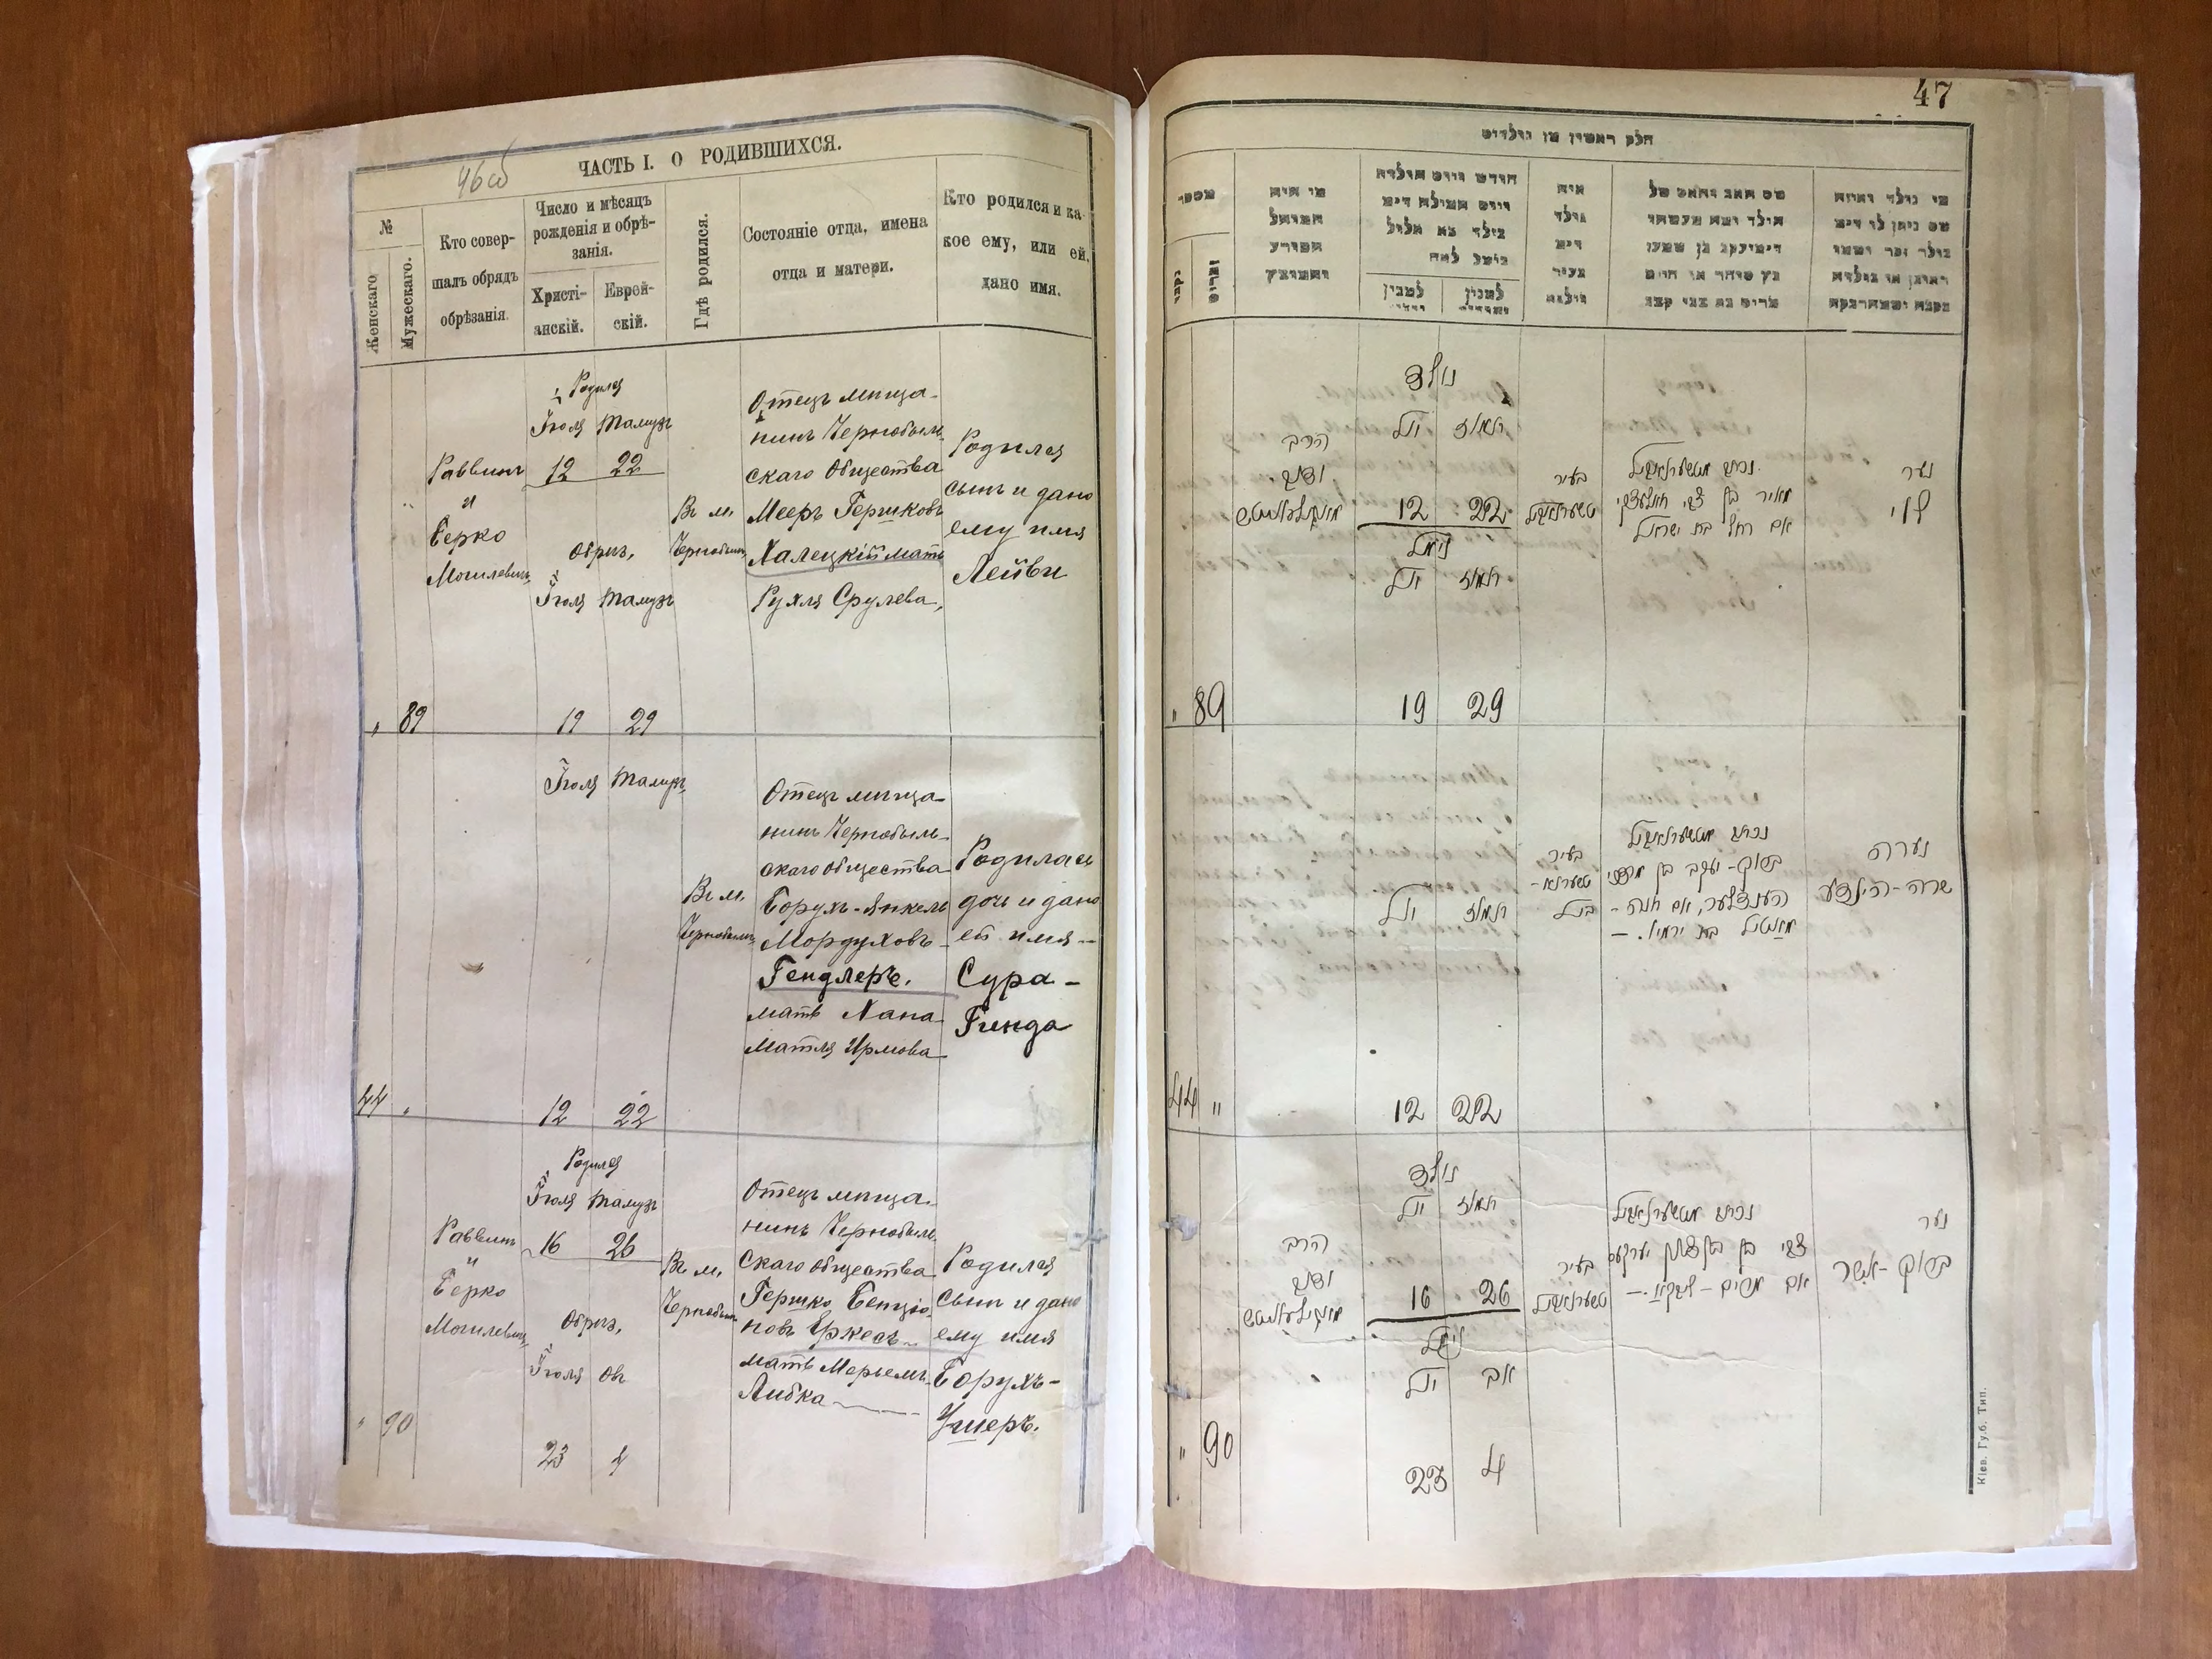 46об
ЧАСТЬ I. О РОДИВШИХСЯ.
№
Женскаго
Мужескаго.
Кто совер-
шалъ обрядъ
обрѣзанія.
Число и мѣсяцъ
рожденія и обрѣ-
занія.
Христі-
анскій.
Еврей-
скій.
Гдѣ родился.
Состояніе отца, имена
отца и матери.
Кто родился и ка-
кое ему, или ей,
дано имя.
„ 89
Раввинъ
и
Берко
Могилевичъ
Родился
Іюля Тамузъ
12 22
Обрѣз,
Іюля Тамузъ
19 29
Въ м.
Чернобыль
Отецъ мѣща-
нинъ Чернобыль-
скаго Общества
Мееръ Гершковъ
Халецкій мать
Рухля Срулева,
Родился
сынъ и дано
ему имя
Лейви
44 „
Іюля Тамузъ
12 22
Въ м.
Чернобыль
Отецъ мѣща-
нинъ Чернобыль-
скаго общества
Борухъ-Янкель
Мордуховъ
Гендлеръ.
мать Хана
Матля Ирмова
Родилась
дочь и дано
ей имя
Сура-
Гинда
„ 90
Раввинъ
и
Берко
Могилевичъ
Родился
Іюля Тамузъ
16 26
Обрѣз,
Іюля Овъ
23 4
Въ м.
Чернобыль
Отецъ мѣща-
нинъ Чернобыль-
скаго общества
Гершко Бенціо-
новъ Іркесъ
мать Мерьемъ-
Либка
Родился
сынъ и дано
ему имя
Борухъ-
Ушеръ.
47
חלק ראשון מן נולדים
מספר
נקבי
זכרים
מי היה
המוהל
חודש ויום הולדה
ויום המילה
איה
נולד
שם האב
מי נולד ואיזה
שם ניתן לו
„ 89
הרב
נולד
תמוז יולי
12 22
נימול
תמוז יולי
19 29
בעיר
טשערנאביל
נכתב מטשערנאביל
מאיר בן צבי חאלעצקי
אם רחל בת ישראל
נער
לוי
44 „
תמוז יולי
12 22
בעיר
טשערנא-
ביל
נכתב מטשערנאביל
ברוך-יעקב בן מרדכי
הענדלער, אם חנה-
מאטיל בת ירמי׳.
נערה
שרה-הינדע
„ 90
הרב
נולד
תמוז יולי
16 26
נימול
אב יולי
23 4
בעיר
טשערנאביל
נכתב מטשערנאביל
צבי בן בן ציון יערקעס
אם מרים-ליבקא.
נער
ברוך-אשר
Кіев. Губ. Тип.